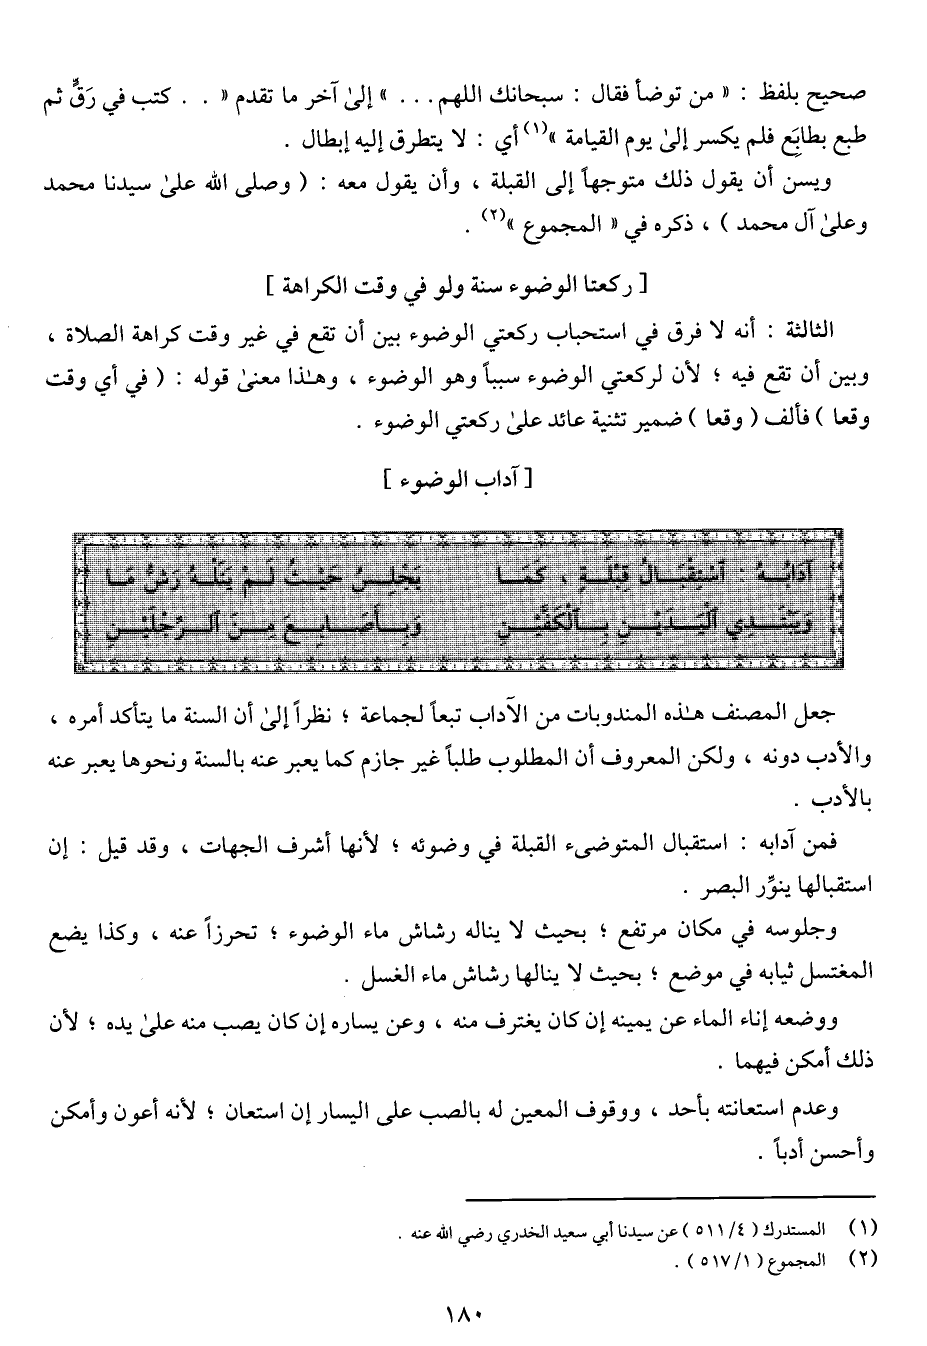 صحيح بلفظ : « من توضأ فقال : سبحانك اللهم . . . » إلىٰ آخر ما تقدم « . . كتب في رَقٍّ ثم
طبع بطابَع فلم يكسر إلىٰ يوم القيامة »(١) أي : لا يتطرق إليه إبطال .
ويسن أن يقول ذلك متوجهاً إلى القبلة ، وأن يقول معه : ( وصلى الله علىٰ سيدنا محمد
وعلىٰ آل محمد ) ، ذكره في « المجموع »(٢) .
[ ركعتا الوضوء سنة ولو في وقت الكراهة ]
الثالثة : أنه لا فرق في استحباب ركعتي الوضوء بين أن تقع في غير وقت كراهة الصلاة ،
وبين أن تقع فيه ؛ لأن لركعتي الوضوء سبباً وهو الوضوء ، وهـٰذا معنىٰ قوله : ( في أي وقت
وقعا ) فألف ( وقعا ) ضمير تثنية عائد علىٰ ركعتي الوضوء .
[ آداب الوضوء ]
آدَابُـهُ : ٱسْتِقْبَـالُ قِبْلَـةٍ ، كَمَـا يَجْلِـسُ حَيْـثُ لَـمْ يَنَلْـهُ رَشُّ مَـا
وَيَبْتَـدِي ٱلْيَـدَيْـنِ بِـٱلْكَفَّيْـنِ وَبِـأَصَـابِـعَ مِـنَ ٱلـرِّجْلَيْـنِ
جعل المصنف هـٰذه المندوبات من الآداب تبعاً لجماعة ؛ نظراً إلىٰ أن السنة ما يتأكد أمره ،
والأدب دونه ، ولكن المعروف أن المطلوب طلباً غير جازم كما يعبر عنه بالسنة ونحوها يعبر عنه
بالأدب .
فمن آدابه : استقبال المتوضىء القبلة في وضوئه ؛ لأنها أشرف الجهات ، وقد قيل : إن
استقبالها ينوِّر البصر .
وجلوسه في مكان مرتفع ؛ بحيث لا يناله رشاش ماء الوضوء ؛ تحرزاً عنه ، وكذا يضع
المغتسل ثيابه في موضع ؛ بحيث لا ينالها رشاش ماء الغسل .
ووضعه إناء الماء عن يمينه إن كان يغترف منه ، وعن يساره إن كان يصب منه علىٰ يده ؛ لأن
ذلك أمكن فيهما .
وعدم استعانته بأحد ، ووقوف المعين له بالصب على اليسار إن استعان ؛ لأنه أعون وأمكن
وأحسن أدباً .
(١) المستدرك ( ٤/ ٥١١ ) عن سيدنا أبي سعيد الخدري رضي الله عنه .
(٢) المجموع ( ١/ ٥١٧ ) .
١٨٠